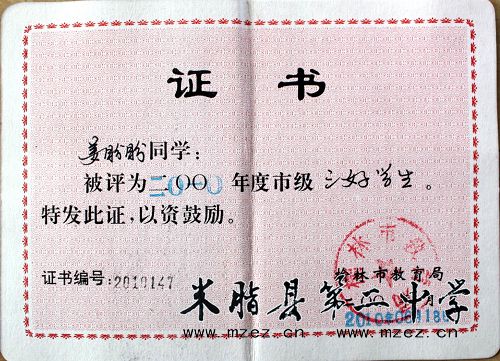 证书
姜盼盼同学：
被评为二〇一〇年度市级三好学生。
特发此证，以资鼓励。
证书编号：2010147
榆林市教育局
米脂县第三中学
www.mzez.cn www.mzez.cn